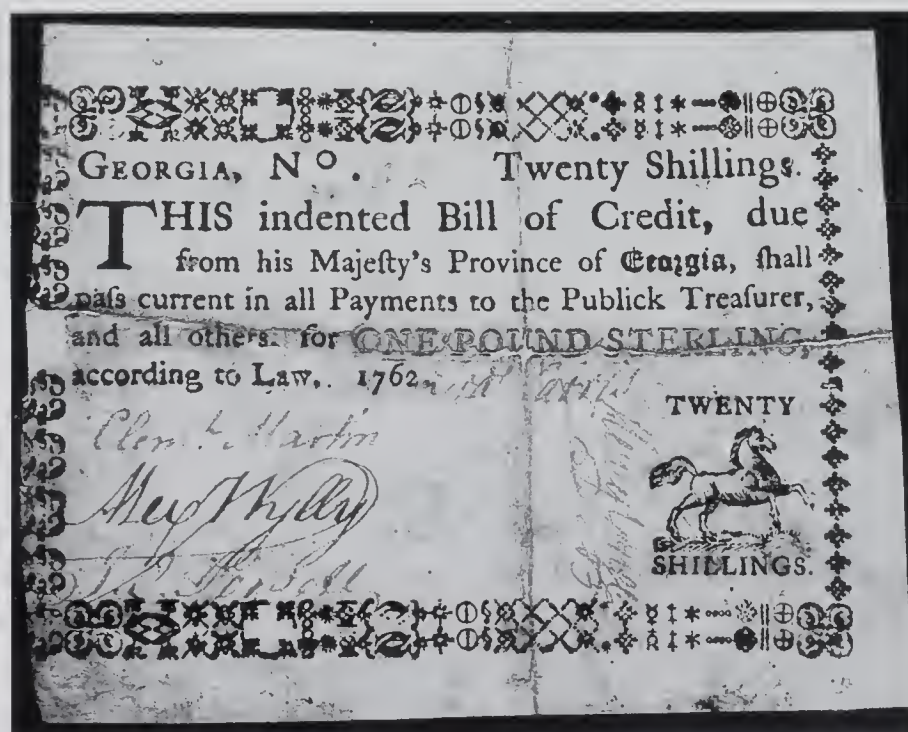 GEORGIA, No. Twenty Shillings.
THIS indented Bill of Credit, due
from his Majeſty's Province of Georgia, ſhall
paſs current in all Payments to the Publick Treaſurer,
and all others. for ONE POUND STERLING,
according to Law,. 1762.
TWENTY
SHILLINGS.
Clemt. Martin
Alex Wylly